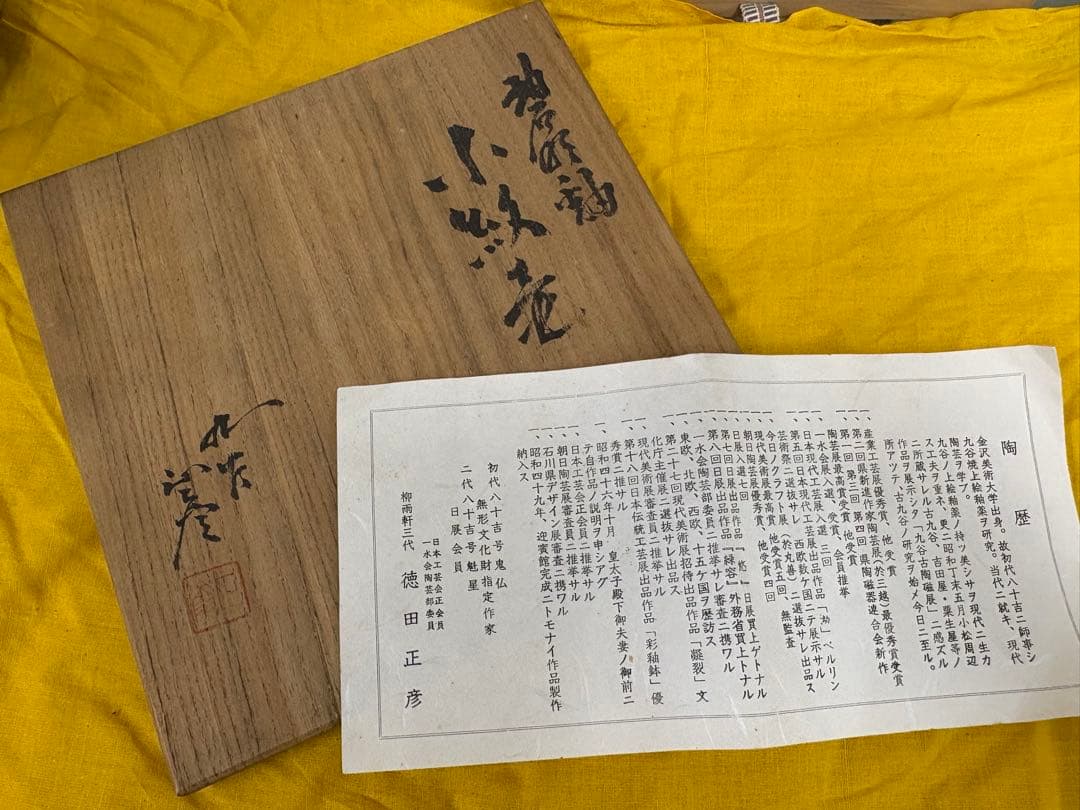 碧明釉
小紋壺
九谷
正彦
陶歴
金沢美術大学出身。故初代八十吉ニ師事シ
九谷焼上絵釉薬ヲ研究。当代ニ就キ、現代
陶芸ヲ学ブ。
九谷ノ上絵釉薬ノ持ツ美シサヲ現代ニ生カ
ス工夫ヲ重ネ、更ニ昭和丁末五月小松周辺
ニ所蔵サレル古九谷、吉田屋・粟生屋等ノ
作品ヲ展示シタ「九谷古陶磁展」ニ感ズル
所アツテ古九谷ノ研究ヲ始メ今日ニ至ル。
一、産業工芸展優秀賞、他受賞
一、第二回県新進作家陶芸展(於三越)最優秀賞受賞
一、第一回 第二回 第四回 県陶磁器連合会新作
陶芸展最高賞受賞、他受賞
一、一水会展入選、受賞、会員推挙
一、日本現代工芸展入選 三回
一、第五回日本現代工芸展出品作品「劫」ベルリン
芸術祭ニ選抜サレ 西欧数ケ国ニテ展示サル
一、今日ノクラフト展(於丸善)ニ選抜サレ出品ス
一、現代美術展最高賞、他受賞五回、無監査
一、朝日陶芸展優秀賞、他受賞四回
一、日展入選七回
一、第七回日展出品作品「悠」日展買上ゲトナル
一、第八回日展出品作品『緑容』外務省買上トナル
一、一水会陶芸部委員ニ推挙サレ審査ニ携ワル
一、東欧、北欧、西欧、十五ケ国ヲ歴訪ス
一、第二十七回現代美術展招待出品作品「凝裂」文
化庁主催展ニ選抜サレ出品ス
一、現代美術展審査員ニ推挙サル
一、第十八回日本伝統工芸展出品作品「彩釉鉢」優
秀賞ニ推サル
一、昭和四十六年十月 皇太子殿下御夫妻ノ御前ニ
テ自作品ノ説明ヲ申シアグ
一、日本工芸会正会員ニ推挙サル
一、朝日陶芸展審査員ニ推挙サル
一、石川県デザイン展審査ニ携ワル
一、昭和四十九年、迎賓館完成ニトモナイ作品製作
納入ス
初代八十吉号鬼仏
無形文化財指定作家
二代八十吉号魁星
日展会員
日本工芸会正会員
一水会陶芸部委員
柳雨軒三代 徳田正彦